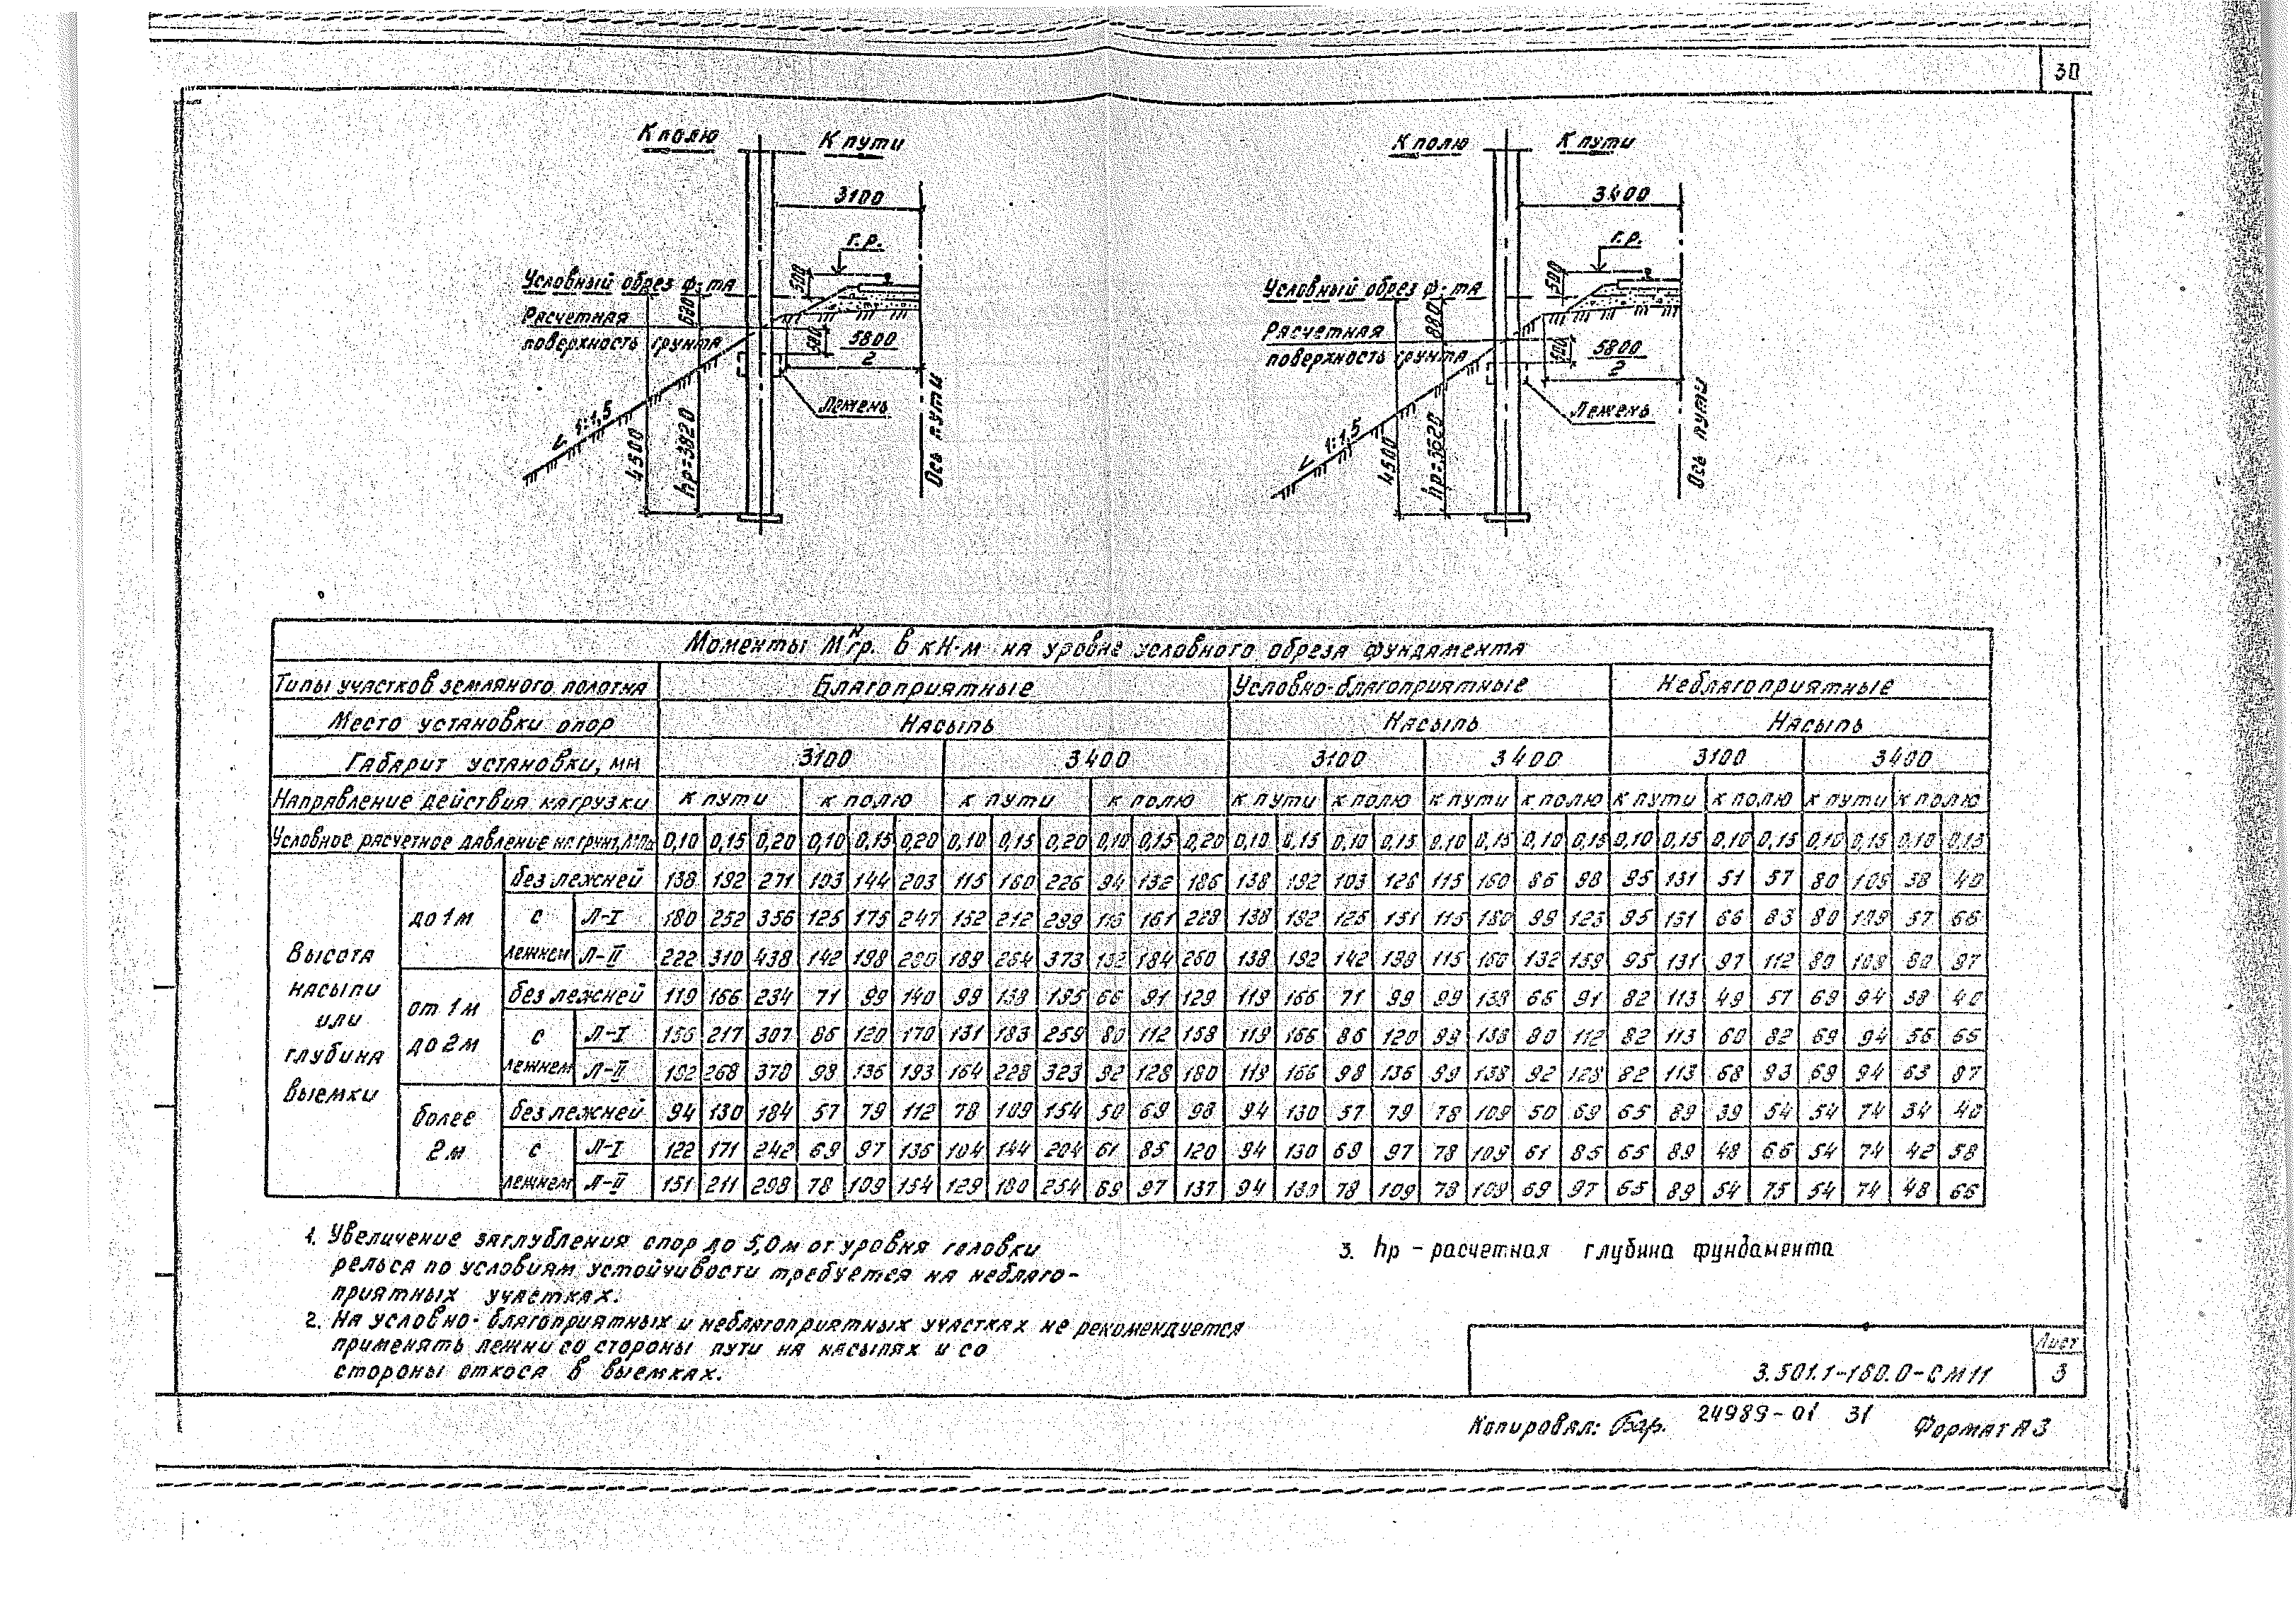 30
К полю
К пути
3100
г.р.
500
Условный обрез ф-та
680
Расчетная
поверхность грунта
500
5800
2
Лежень
1:1,5
4500
hр=3820
Ось пути
К полю
К пути
3400
г.р.
500
Условный обрез ф-та
880
Расчетная
поверхность грунта
500
5800
2
Лежень
1:1,5
4500
hр=3620
Ось пути
Моменты Мᴴгр. в кН·м на уровне условного обреза фундамента
Типы участков земляного полотна Благоприятные Условно-благоприятные Неблагоприятные
Место установки опор Насыпь Насыпь Насыпь
Габарит установки, мм 3100 3400 3100 3400 3100 3400
Направление действия нагрузки к пути к полю к пути к полю к пути к полю к пути к полю к пути к полю к пути к полю
Условное расчетное давление на грунт, МПа 0,10 0,15 0,20 0,10 0,15 0,20 0,10 0,15 0,20 0,10 0,15 0,20 0,10 0,15 0,10 0,15 0,10 0,15 0,10 0,15 0,10 0,15 0,10 0,15 0,10 0,15 0,10 0,15
Высота насыпи или глубина выемки
до 1м
без лежней 138 192 271 103 144 203 115 160 226 94 132 186 138 192 103 126 115 160 86 98 95 131 51 57 80 109 38 40
с лежнем Л-I 180 252 356 125 175 247 152 212 299 161 228 138 192 125 151 115 160 99 123 95 131 66 83 80 109 57 66
Л-II 222 310 438 142 198 280 189 264 373 132 184 260 138 192 142 198 115 160 132 159 95 131 97 112 80 109 80 97
от 1м до 2м
без лежней 119 166 234 71 99 140 99 138 195 66 91 129 119 166 71 99 99 138 66 91 82 113 49 57 69 94 38 40
с лежнем Л-I 156 217 307 86 120 170 131 183 259 80 112 158 119 166 86 120 99 138 80 112 82 113 60 82 69 94 56 66
Л-II 192 268 378 98 136 193 164 228 323 92 128 180 119 166 98 136 99 138 92 128 82 113 68 93 69 94 63 87
более 2м
без лежней 94 130 184 57 79 112 78 109 154 50 69 98 94 130 57 79 78 109 50 69 65 89 39 54 54 74 34 40
с лежнем Л-I 122 171 242 69 97 136 104 144 204 61 85 120 94 130 69 97 78 109 61 85 65 89 48 66 54 74 42 58
Л-II 151 211 298 78 109 154 129 180 254 69 97 137 94 130 78 109 78 109 69 97 65 89 54 75 54 74 48 66
1. Увеличение заглубления опор до 5,0м от уровня головки
рельса по условиям устойчивости требуется на неблаго-
приятных участках.
2. На условно-благоприятных и неблагоприятных участках не рекомендуется
применять лежни со стороны пути на насыпях и со
стороны откоса в выемках.
3. hр - расчетная глубина фундамента
3.501.1-160.0-СМ11
Лист
3
Копировал: Бар.
24989-01 31
Формат А3